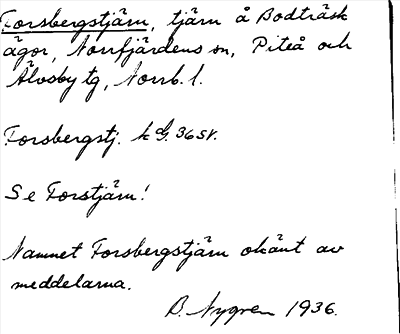 Forsbergstjärn, tjärn å Bodträsk
ägor, Norrfjärdens sn, Piteå och
Älvsby tg, Norrb. l.
Forsbergstj. k G. 36 SV.
Se Forstjärn!
Namnet Forsbergstjärn okänt av
meddelarna.
B. Nygren 1936.